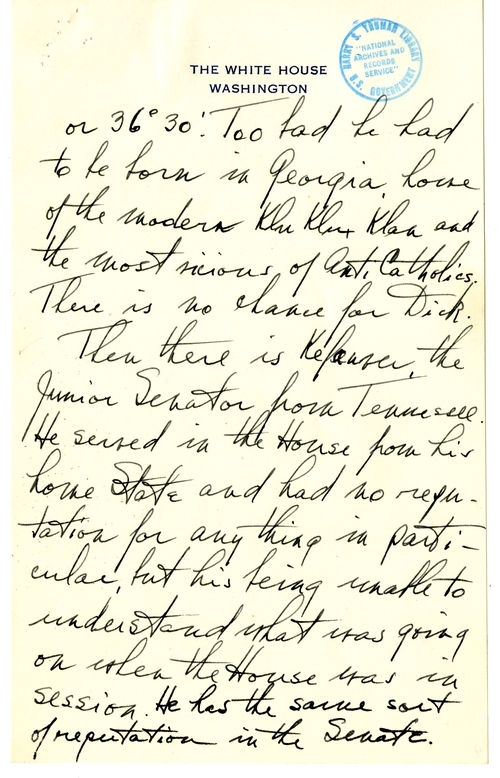 THE WHITE HOUSE
WASHINGTON
HARRY S. TRUMAN LIBRARY
"NATIONAL
ARCHIVES AND
RECORDS
SERVICE"
U.S. GOVERNMENT
or 36° 30'. Too bad he had
to be born in Georgia, home
of the modern Klu Klux Klan and
the most vicious of Anti Catholics.
There is no chance for Dick.
Then there is Kefauver, the
Junior Senator from Tennessee.
He served in the House from his
home State and had no repu-
tation for anything in parti-
cular, but his being unable to
understand what was going
on when the House was in
session. He has the same sort
of reputation in the Senate.